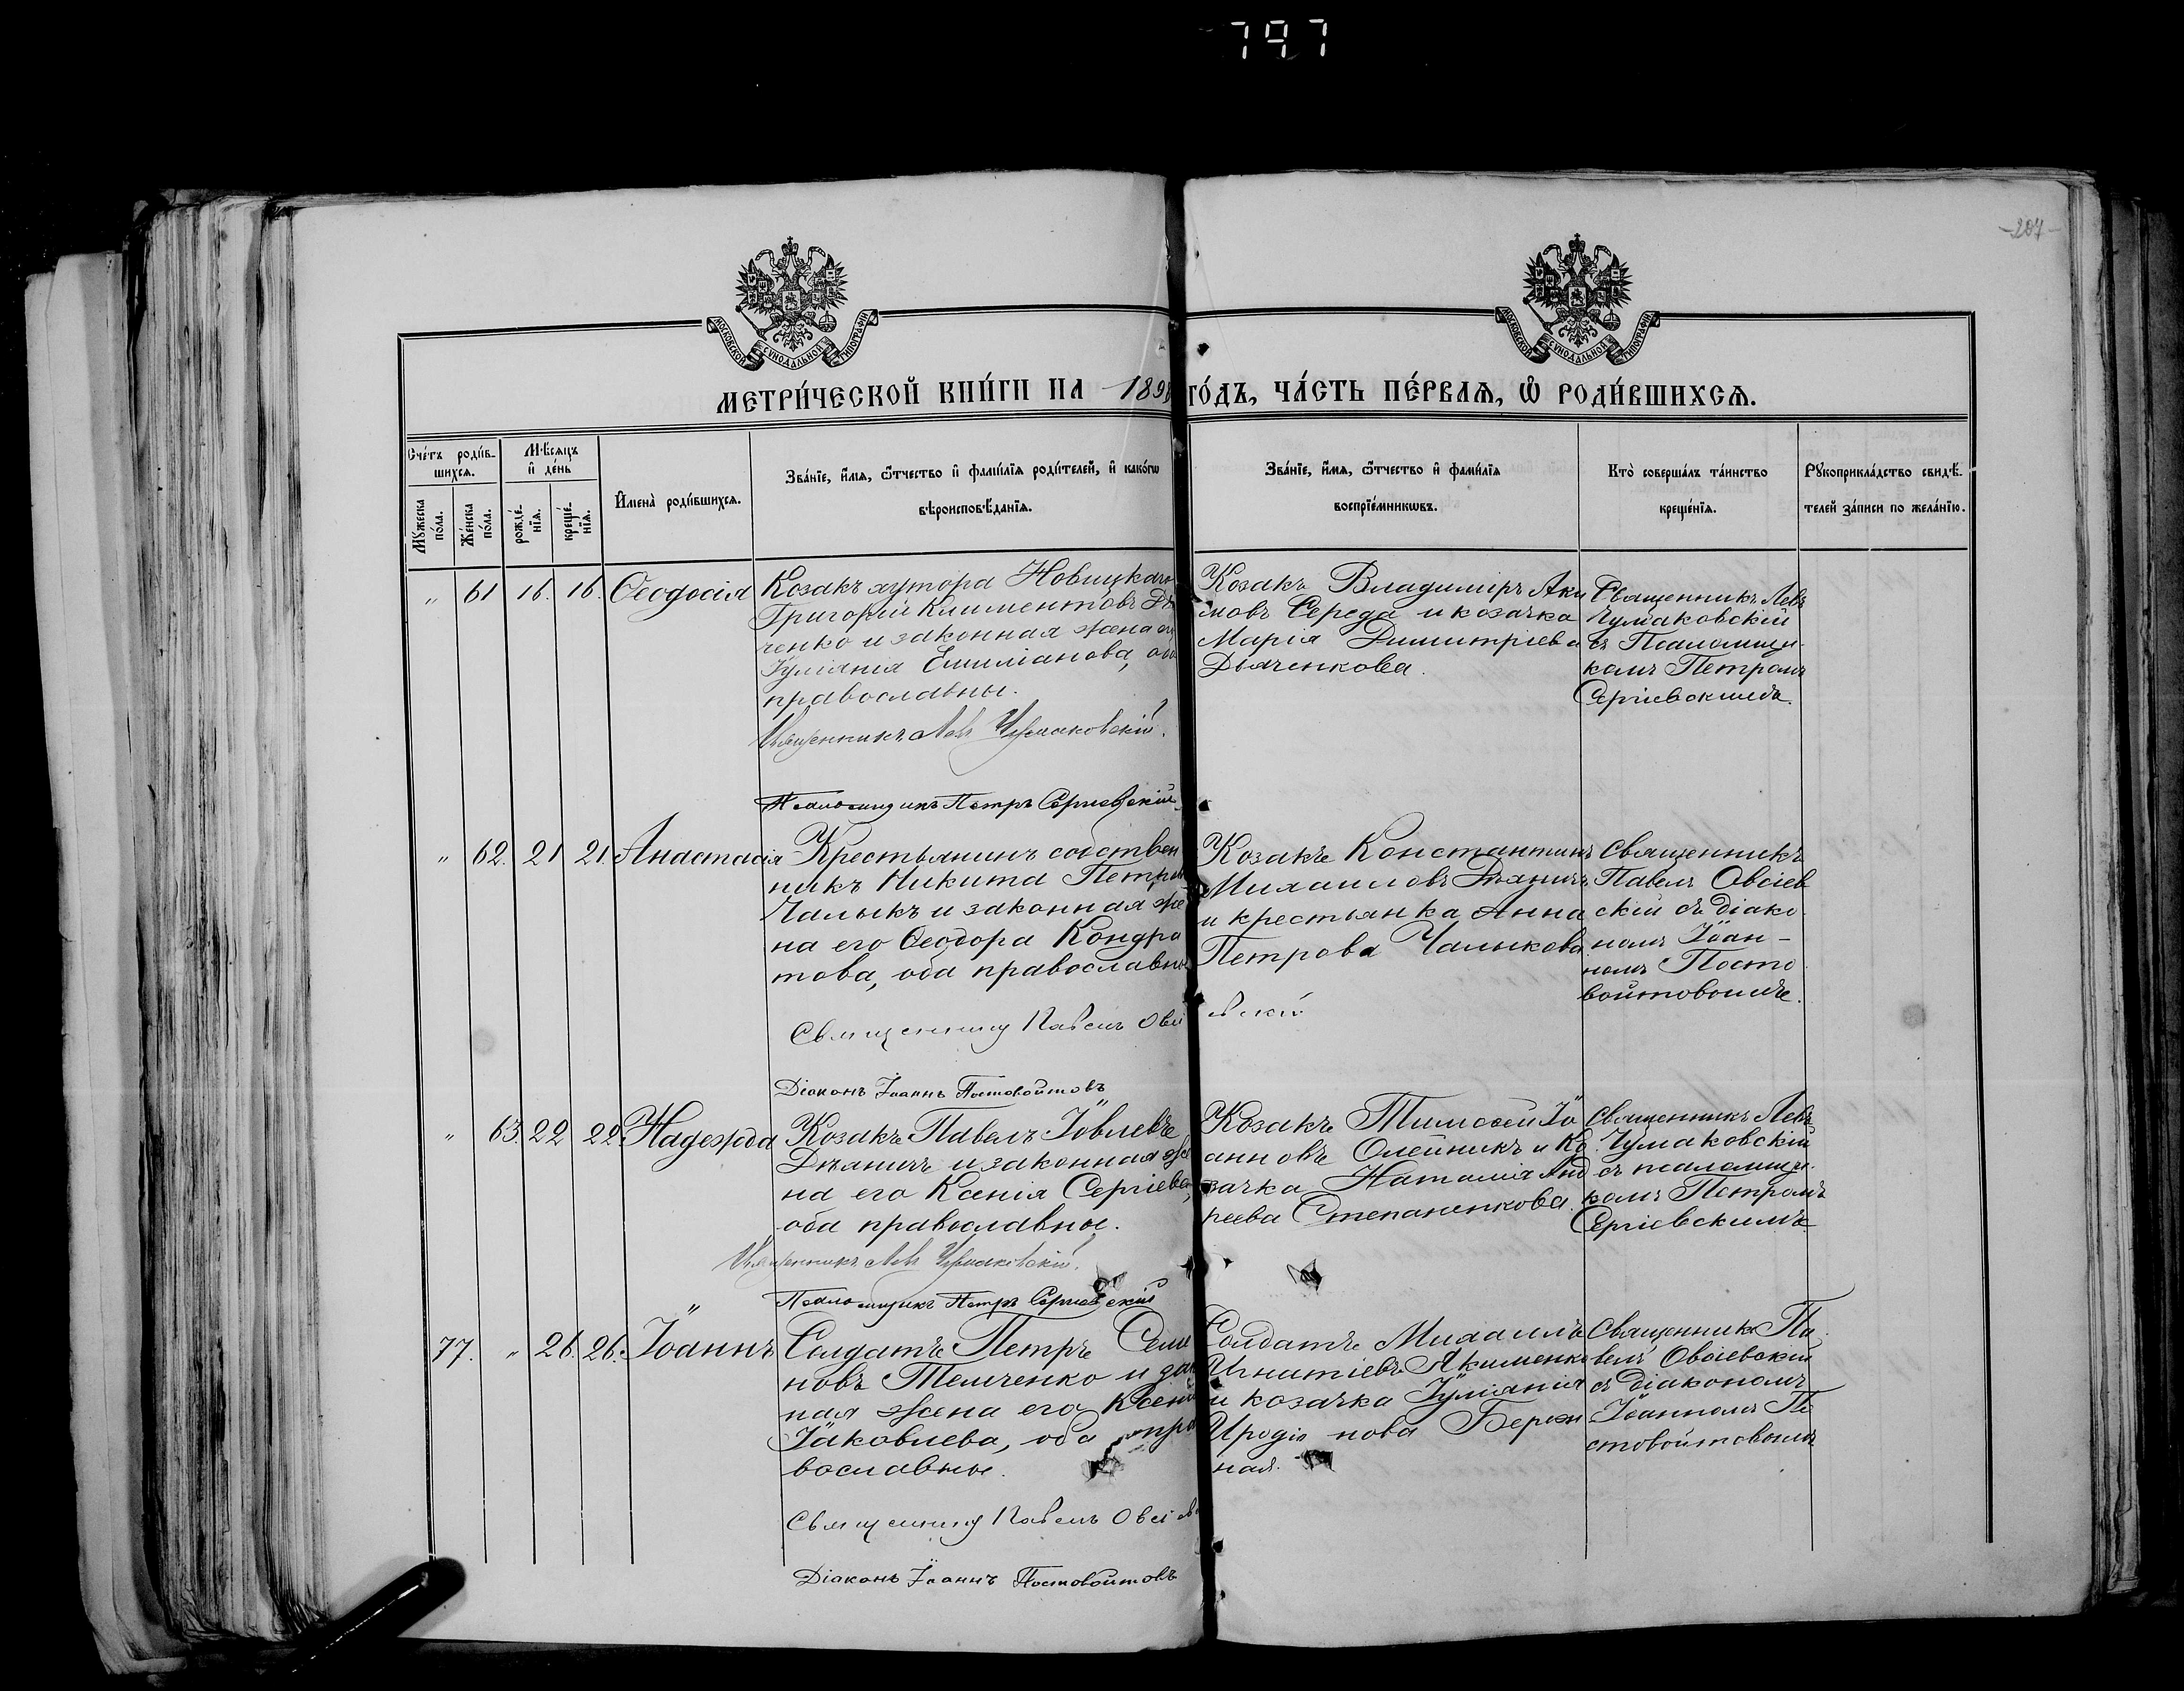 797
-207-
МОСКОВСКОЙ СѴНОДАЛЬНОЙ ТИПОГРАФІИ
МОСКОВСКОЙ СѴНОДАЛЬНОЙ ТИПОГРАФІИ
МЕТРИ́ЧЕСКОЙ КНИ́ГИ НА 1898 ГО́ДЪ, ЧА́СТЬ ПЕ́РВАѦ, Ѽ РОДИ́ВШИХСѦ.
Сче́тъ роди́в-
шихсѧ.
Мѣ́сѧцъ
и҆ де́нь
Мꙋ́жеска
по́ла.
Же́нска
по́ла.
рожде́-
нїѧ.
креще́-
нїѧ.
И҆мена̀ роди́вшихсѧ.
Зва́нїе, и҆́мѧ, ѻ҆́тчество и҆ фами́лїѧ роди́телей, и҆ како́гѡ
вѣроисповѣ́данїѧ.
Зва́нїе, и҆́мѧ, ѻ҆́тчество и҆ фами́лїѧ
воспрїе́мникѡвъ.
Кто̀ соверша́лъ та́инство
креще́нїѧ.
Рꙋкоприкла́дство свидѣ́-
телей за́писи по жела́нїю.
" 61 16. 16. Ѳеодосія
Козакъ хутора Новицкаго
Григорій Климентовъ Дя
ченко и законная жена его
Іуліанія Емиліанова, оба
православны.
Священникъ Левъ Чумаковскій.
Псаломщикъ Петръ Сергіевскій
Козакъ Владиміръ Аки
мовъ Середа и козачка
Марія Димитріева
Дьяченкова.
Священникъ Левъ
Чумаковскій
съ Псаломщи-
комъ Петромъ
Сергіевскимъ.
" 62. 21 21. Анастасія
Крестьянинъ собствен
никъ Никита Петровъ
Чалыкъ и законная же
на его Ѳеодора Кондра
това, оба православны
Священникъ Павелъ Овсіевскій
Діаконъ Іоаннъ Постовойтовъ
Козакъ Константинъ
Михаиловъ Дѣяничъ
и крестьянка Анна
Петрова Чалыкова
Священникъ
Павелъ Овсіев
скій съ діако-
номъ Іоан-
номъ Посто
войтовымъ.
" 63. 22 22. Надежда
Козакъ Павелъ Іовлевъ
Дѣяничъ и законная же
на его Ксенія Сергіева,
оба православные.
Священникъ Левъ Чумаковскій.
Псаломщикъ Петръ Сергіевскій
Козакъ Тимоѳей Іо
анновъ Олейникъ и Ко
зачка Наталія Анд
реева Степаненкова.
Священникъ Левъ
Чумаковскій
съ псаломщи-
комъ Петромъ
Сергіевскимъ
77. " 26. 26. Іоаннъ
Солдатъ Петръ Семе
новъ Темченко и закон
ная жена его Ксенія
Іаковлева, оба пра
вославные.
Священникъ Павелъ Овсіев
Діаконъ Іоаннъ Постовойтовъ
Солдатъ Михаилъ
Игнатіевъ Якименко
и козачка Іуліанія
Иродіонова Береж
ная.
Священникъ Па
велъ Овсіевскій
съ діакономъ
Іоанномъ По
стовойтовымъ